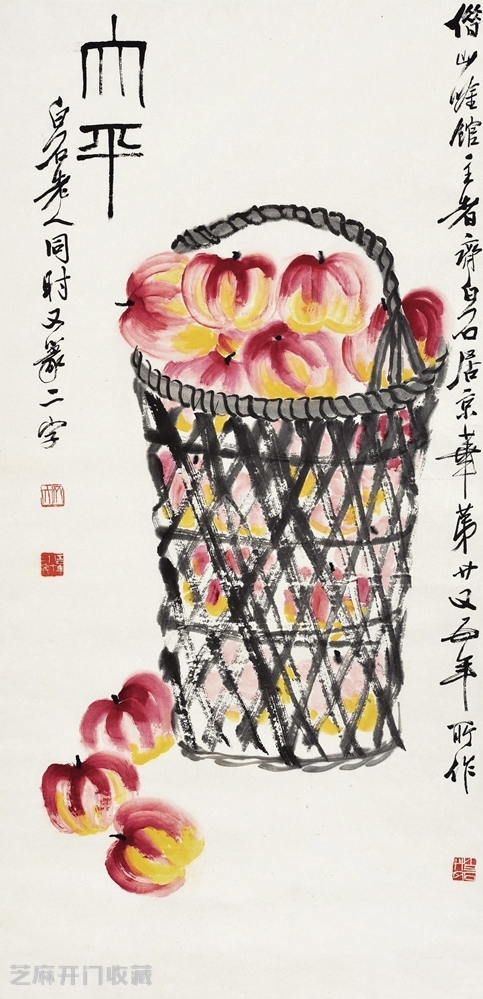 借山唫館主者齊白石居京華第廿又五年所作
大平
白石老人同時又篆二字
芝麻开门收藏